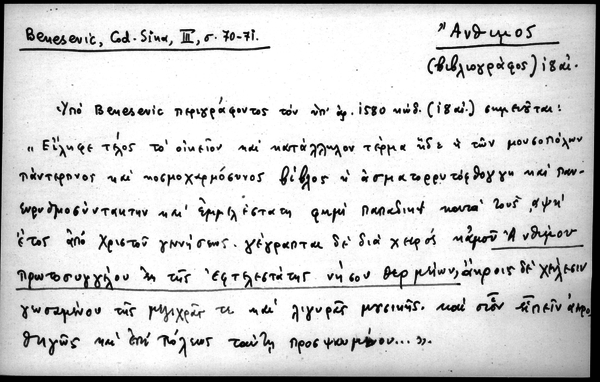 Benesevic, Cod. Sina, III, σ. 70-71.
Ἄνθιμος
(βιβλιογράφος) ιβαι.
Ὑπό Benesevic περιγράφοντος τόν ὑπ' ἀρ. 1580 κώδ. (ιβαι.) σημειοῦται:
„Εἴληφε τέλος τό οἰκεῖον καί κατάλληλον τέρμα ἥδε ἡ τῶν μουσοπόλων
πάντερπνος καί κοσμοχαρμόσυνος βίβλος ἡ ᾀσματορρυτόφθογγη καί παν-
ευρυθμοσύντακτη καί ἐμμελέστατη φημί παπαδική κατά τούς
ἔτος ἀπό Χριστοῦ γεννήσεως. γέγραπται δέ διά χειρός κἀμοῦ Ἀνθίμου
πρωτοσυγγέλου ἐκ τῆς νήσου θερμίων, ἄκροις δέ χείλεσιν
γευσαμένου τῆς μελιχρᾶς τε καί λιγυρᾶς μουσικῆς. καί εἰπεῖν ἀκρο
θιγῶς καί πόλεως ταύτῃ ...».